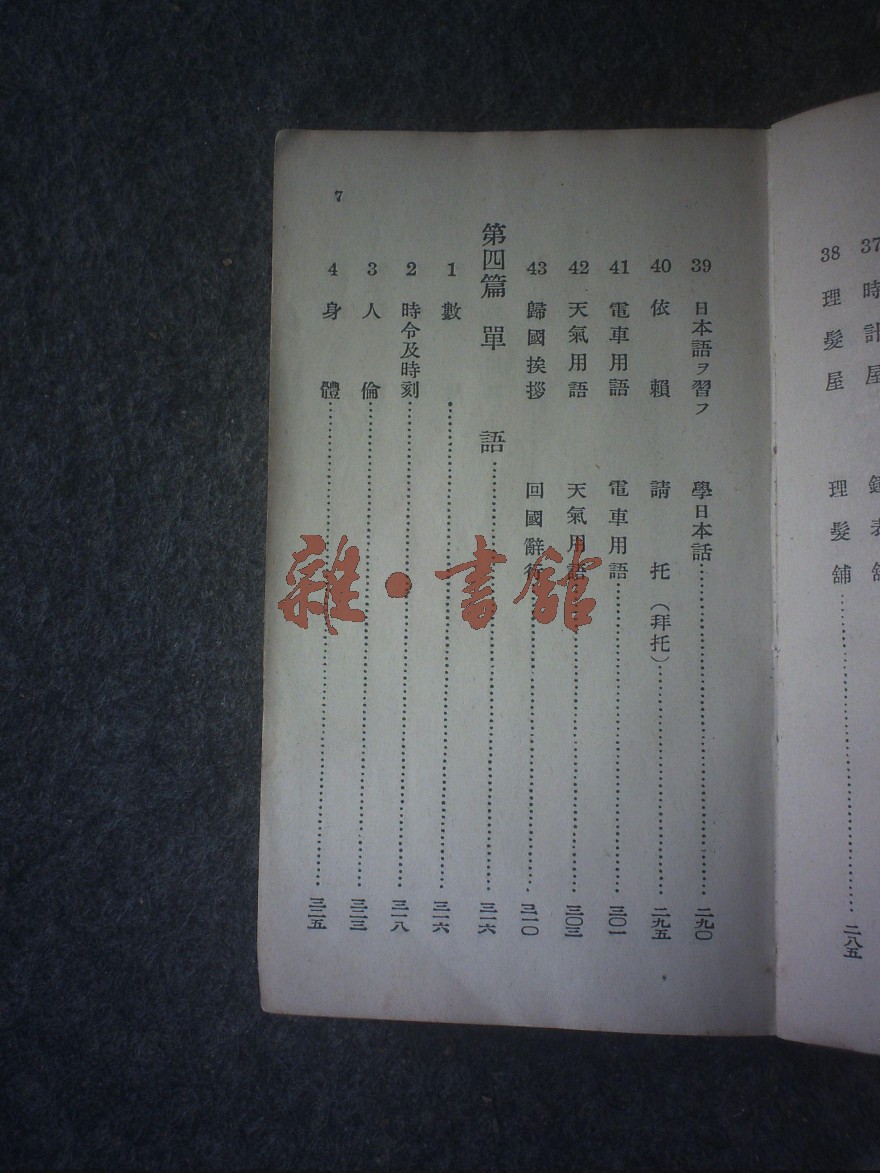 37 時計屋 鐘表舖
38 理髮屋 理髮舖 二八五
39 日本語ヲ習フ 學日本話 二九〇
40 依賴 請托(拜托) 二九五
41 電車用語 電車用語 三〇一
42 天氣用語 天氣用語 三〇三
43 歸國挨拶 回國辭行 三一〇
第四篇 單語 三一六
1 數 三一六
2 時令及時刻 三一八
3 人倫 三二三
4 身體 三二五
7
雜·書館